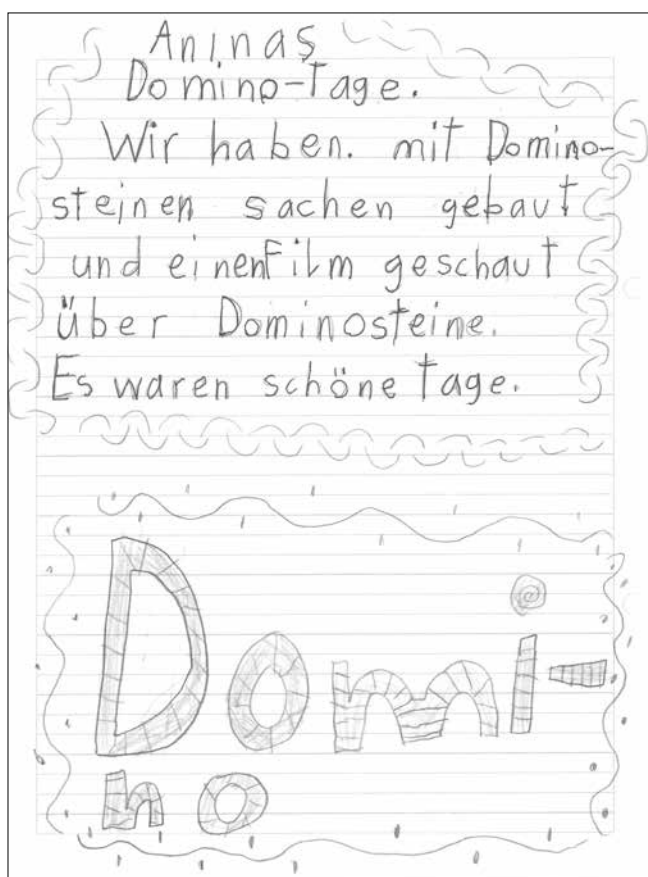 Aninas
Domino-Tage.
Wir haben. mit Domino-
steinen sachen gebaut
und einen Film geschaut
über Dominosteine.
Es waren schöne tage.
Domi-
no